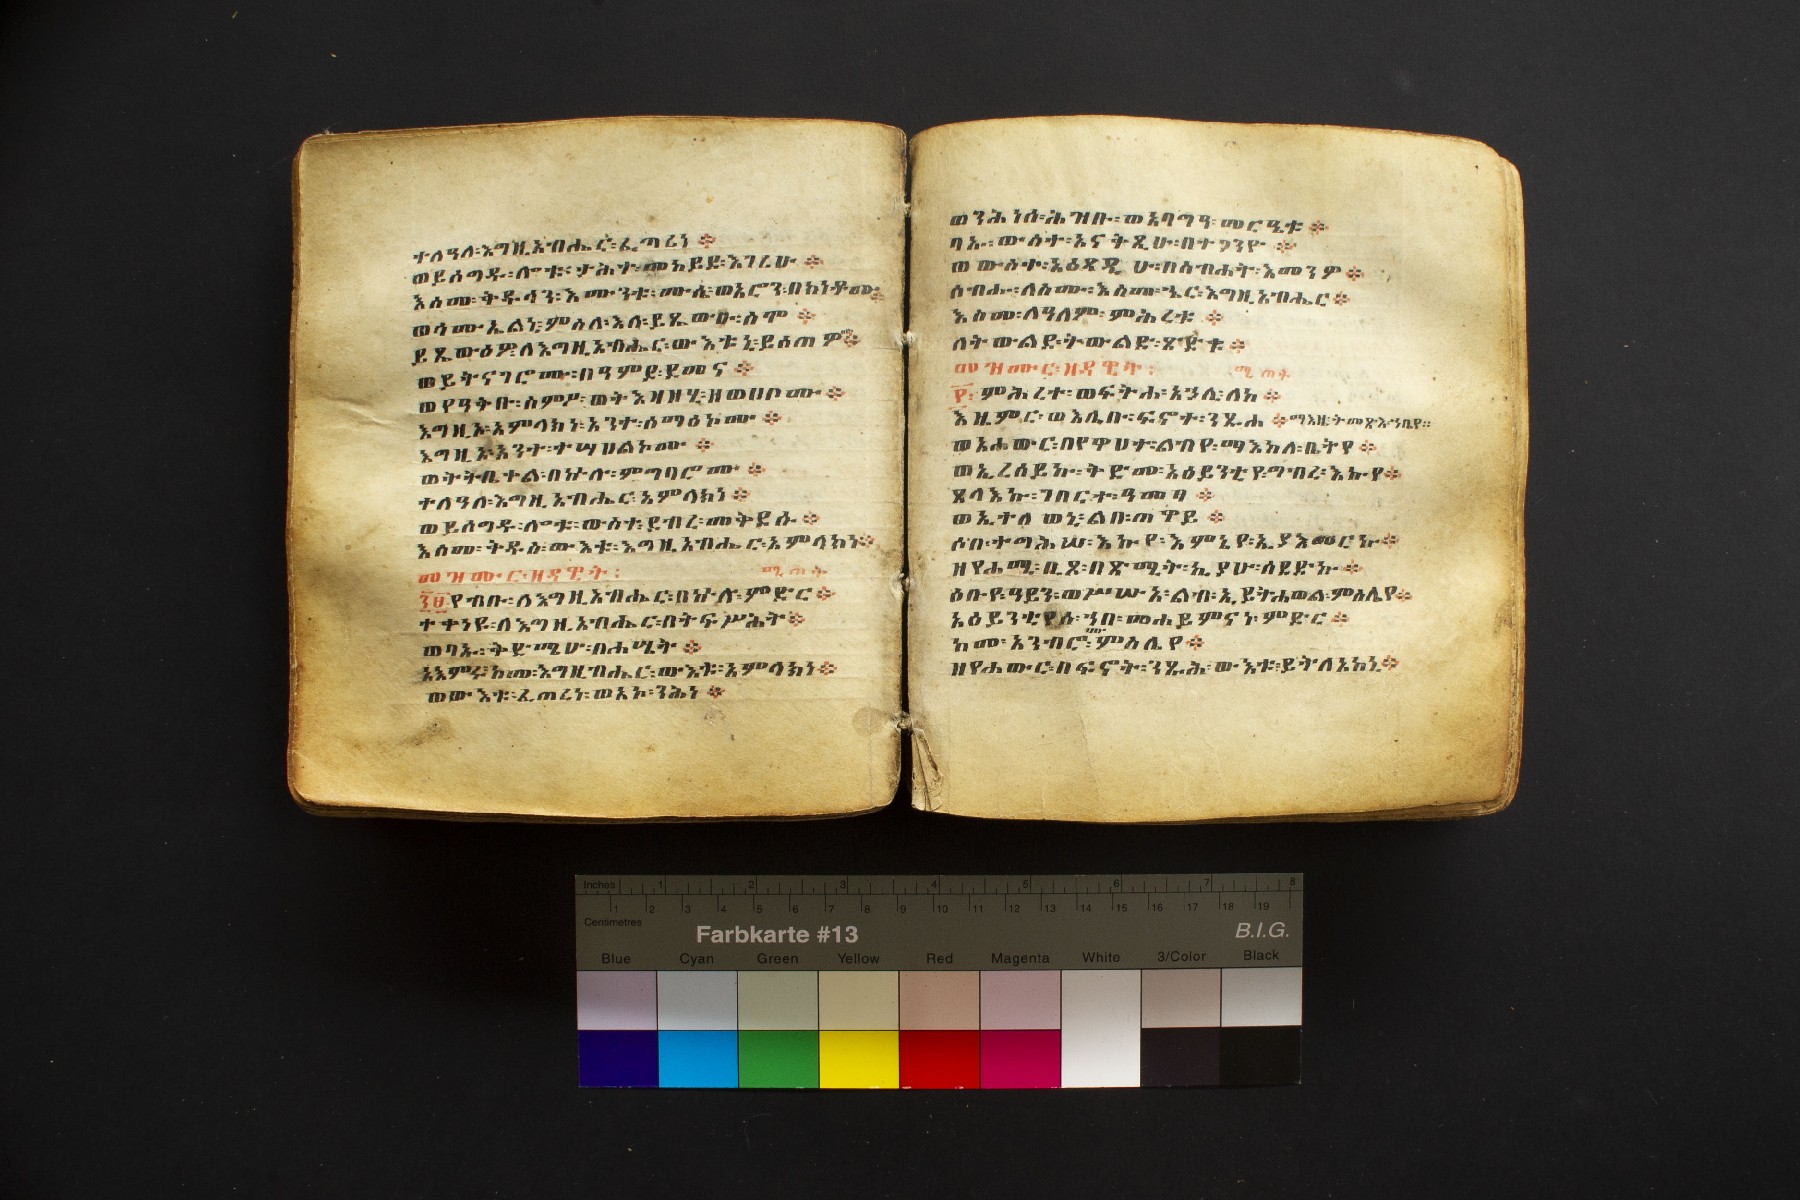 ተለዓለ፡እግዚአብሔር፡ፈጣሪነ ፨
ወይሰግዱ፡ሎቱ፡ታሕተ፡መከይደ፡እገሪሁ ፨
እስመ፡ቅዱሳን፡እሙንቱ፡ሙሴ፡ወአሮን፡በክህነቶሙ፨
ወሳሙኤልኒ፡ምስለ፡እለ፡ይጼውዑ፡ስሞ ፨
ይጼውዕዎ፡ለእግዚአብሔር፡ውእቱኒ፡ይሰጠዎሙ፨
ወይትናገሮሙ፡በዓምደ፡ደመና ፨
ወየዓቅቡ፡ስምዖ፡ወትእዛዞሂ፡ዘወሀቦሙ፨
እግዚኦ፡አምላክነ፡አንተ፡ሰማዕኮሙ ፨
እግዚኦ፡አንተ፡ተሣሀልኮሙ ፨
ወትትቤቀል፡በኵሉ፡ምግባሮሙ ፨
ተለዓለ፡እግዚአብሔር፡አምላክነ ፨
ወይሰግዱ፡ሎቱ፡ውስተ፡ደብረ፡መቅደሱ ፨
እስመ፡ቅዱስ፡ውእቱ፡እግዚአብሔር፡አምላክነ፨
መዝሙር፡ዘዳዊት፡ ሚጠት
፺፱ የብቡ፡ለእግዚአብሔር፡በኵሉ፡ምድር ፨
ተቀነዩ፡ለእግዚአብሔር፡በትፍሥሕት፨
ወባኡ፡ቅድሜሁ፡በሐሤት ፨
አእምሩ፡ከመ፡እግዚብሔር፡ውእቱ፡አምላክነ፨
ወውእቱ፡ፈጠረነ፡ወአኮ፡ንሕነ ፨
ወንሕነሰ፡ሕዝቡ፡ወአባግዓ፡መርዔቱ ፨
ባኡ፡ውስተ፡አናቅጺሁ፡በተጋንዮ ፨
ወውስተ፡አዕጻዲሁ፡በስብሐት፡እመንዎ፨
ሰብሑ፡ለስሙ፡እስመ፡ኄር፡እግዚአብሔር፨
እስመ፡ለዓለም፡ምሕረቱ ፨
ለትውልደ፡ትውልድ፡ጽድቁ፨
መዝሙር፡ዘዳዊት፡ ሚጠት
፻፡ምሕረተ፡ወፍትሐ፡አኀሊ፡ለከ ፨
እዜምር፡ወእሌቡ፡ፍኖተ፡ንጹሐ ፨ ማእዜ፡ትመጽእ፡ኀቤየ፡፡
ወአሐውር፡በየዋሀተ፡ልብየ፡ማእከለ፡ቤትየ ፨
ወኢረሰይኩ፡ቅድመ፡አዕይንቲየ፡ግብረ፡እኩየ፨
ጸላእኩ፡ገበርተ፡ዓመፃ ፨
ወኢተለወኒ፡ልብ፡ጠዋይ ፨
ሶበ፡ተግሕሠ፡እኩየ፡እምኔየ፡ኢያእመርኩ፨
ዘየሐሚ፡ቢጾ፡በጽሚት፡ኪያሁ፡ሰደድኩ ፨
ዕቡየ፡ዓይን፡ወሥሡአ፡ልብ፡ኢይትሐወል፡ምስሌየ፨
አዕይንቲየሰ፡ኀበ፡መሐይምናነ፡ምድር ፨
ከመ፡አንብሮሙ፡ምስሌየ፨
ዘየሐውር፡በፍኖት፡ንጹሕ፡ውእቱ፡ይትለአከኒ፨
Inches 1 2 3 4 5 6 7 8
1 2 3 4 5 6 7 8 9 10 11 12 13 14 15 16 17 18 19
Centimetres
Farbkarte #13 B.I.G.
Blue Cyan Green Yellow Red Magenta White 3/Color Black